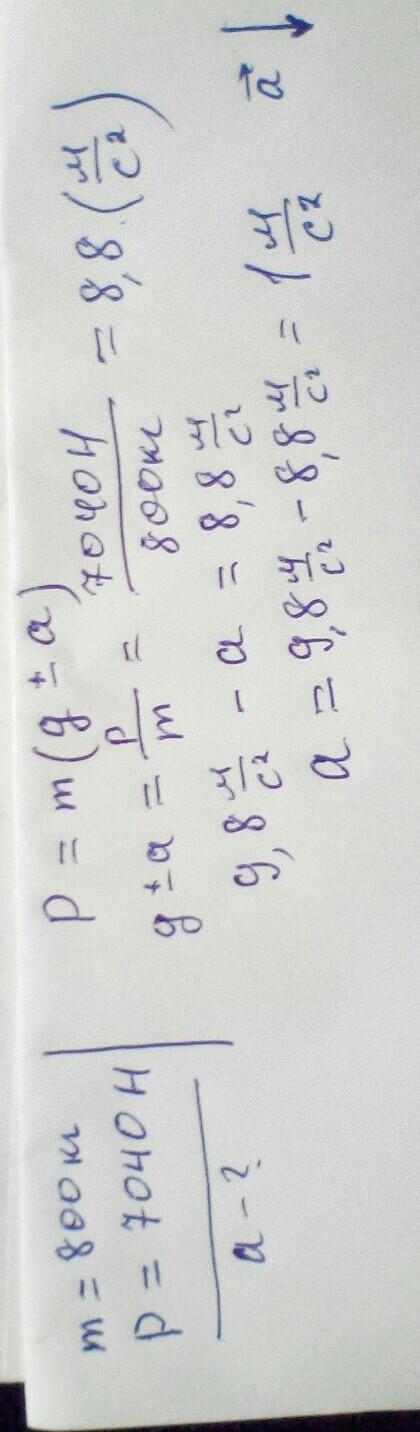 m = 800 т
P = 7040 Н
a - ?
P = m(g ± a)
g ± a = P/m = 7040 Н/800 т = 8,8 (м/с²)
9,8 м/с² - a = 8,8 м/с²
a = 9,8 м/с² - 8,8 м/с² = 1 м/с²
a